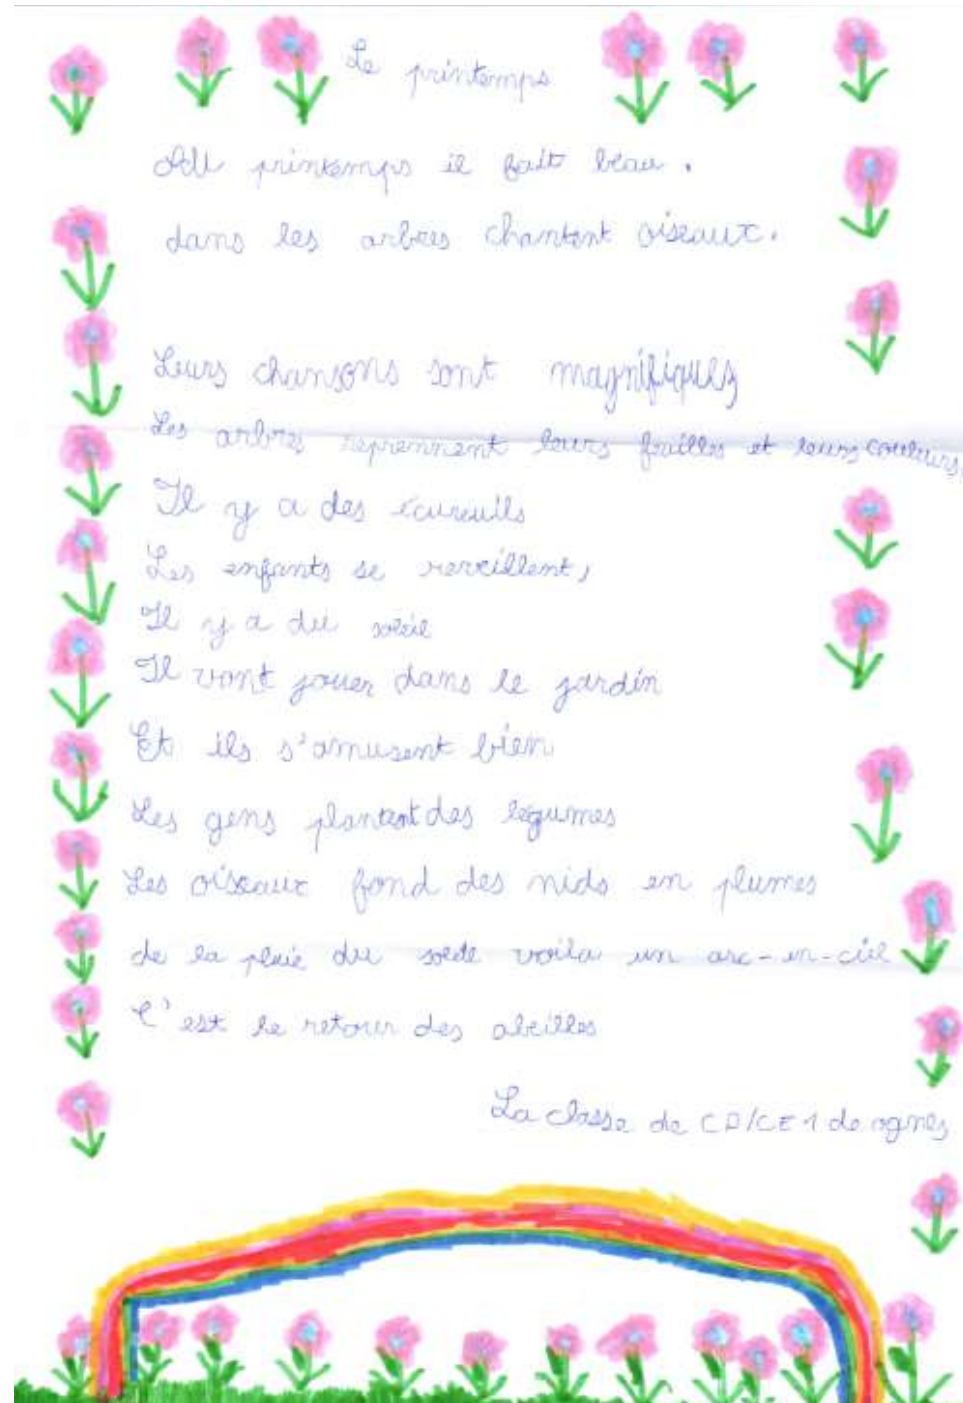 Le printemps
Au printemps il fait beau.
dans les arbres chantent oiseaux.
Leurs chansons sont magnifiques
Les arbres reprennent leurs feuilles et leurs couleurs,
Il y a des écureuils
Les enfants se reveillent,
Il y a du soleil
Il vont jouer dans le jardin
Et ils s'amusent bien
Les gens plantent des légumes
Les oiseaux fond des nids en plumes
de la pluie du soleil voila un arc-en-ciel
C'est le retour des abeilles
La classe de CP/CE1 de ognes